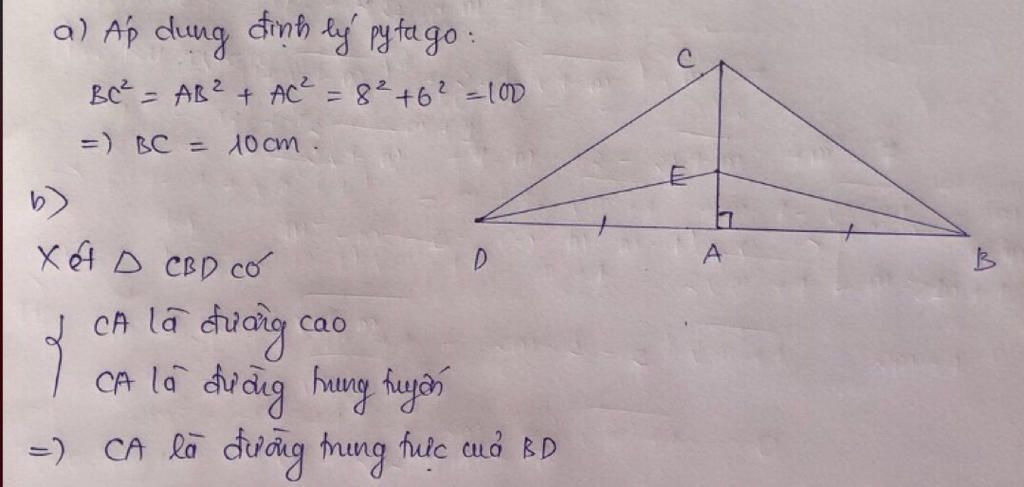 a) Áp dụng định lý pytago:
BC² = AB² + AC² = 8² + 6² = 100
=) BC = 10cm.
b)
Xét Δ CBD có
{ CA là đường cao
CA là đường trung tuyến
=) CA là đường trung trực của BD
C
E
D
A
B